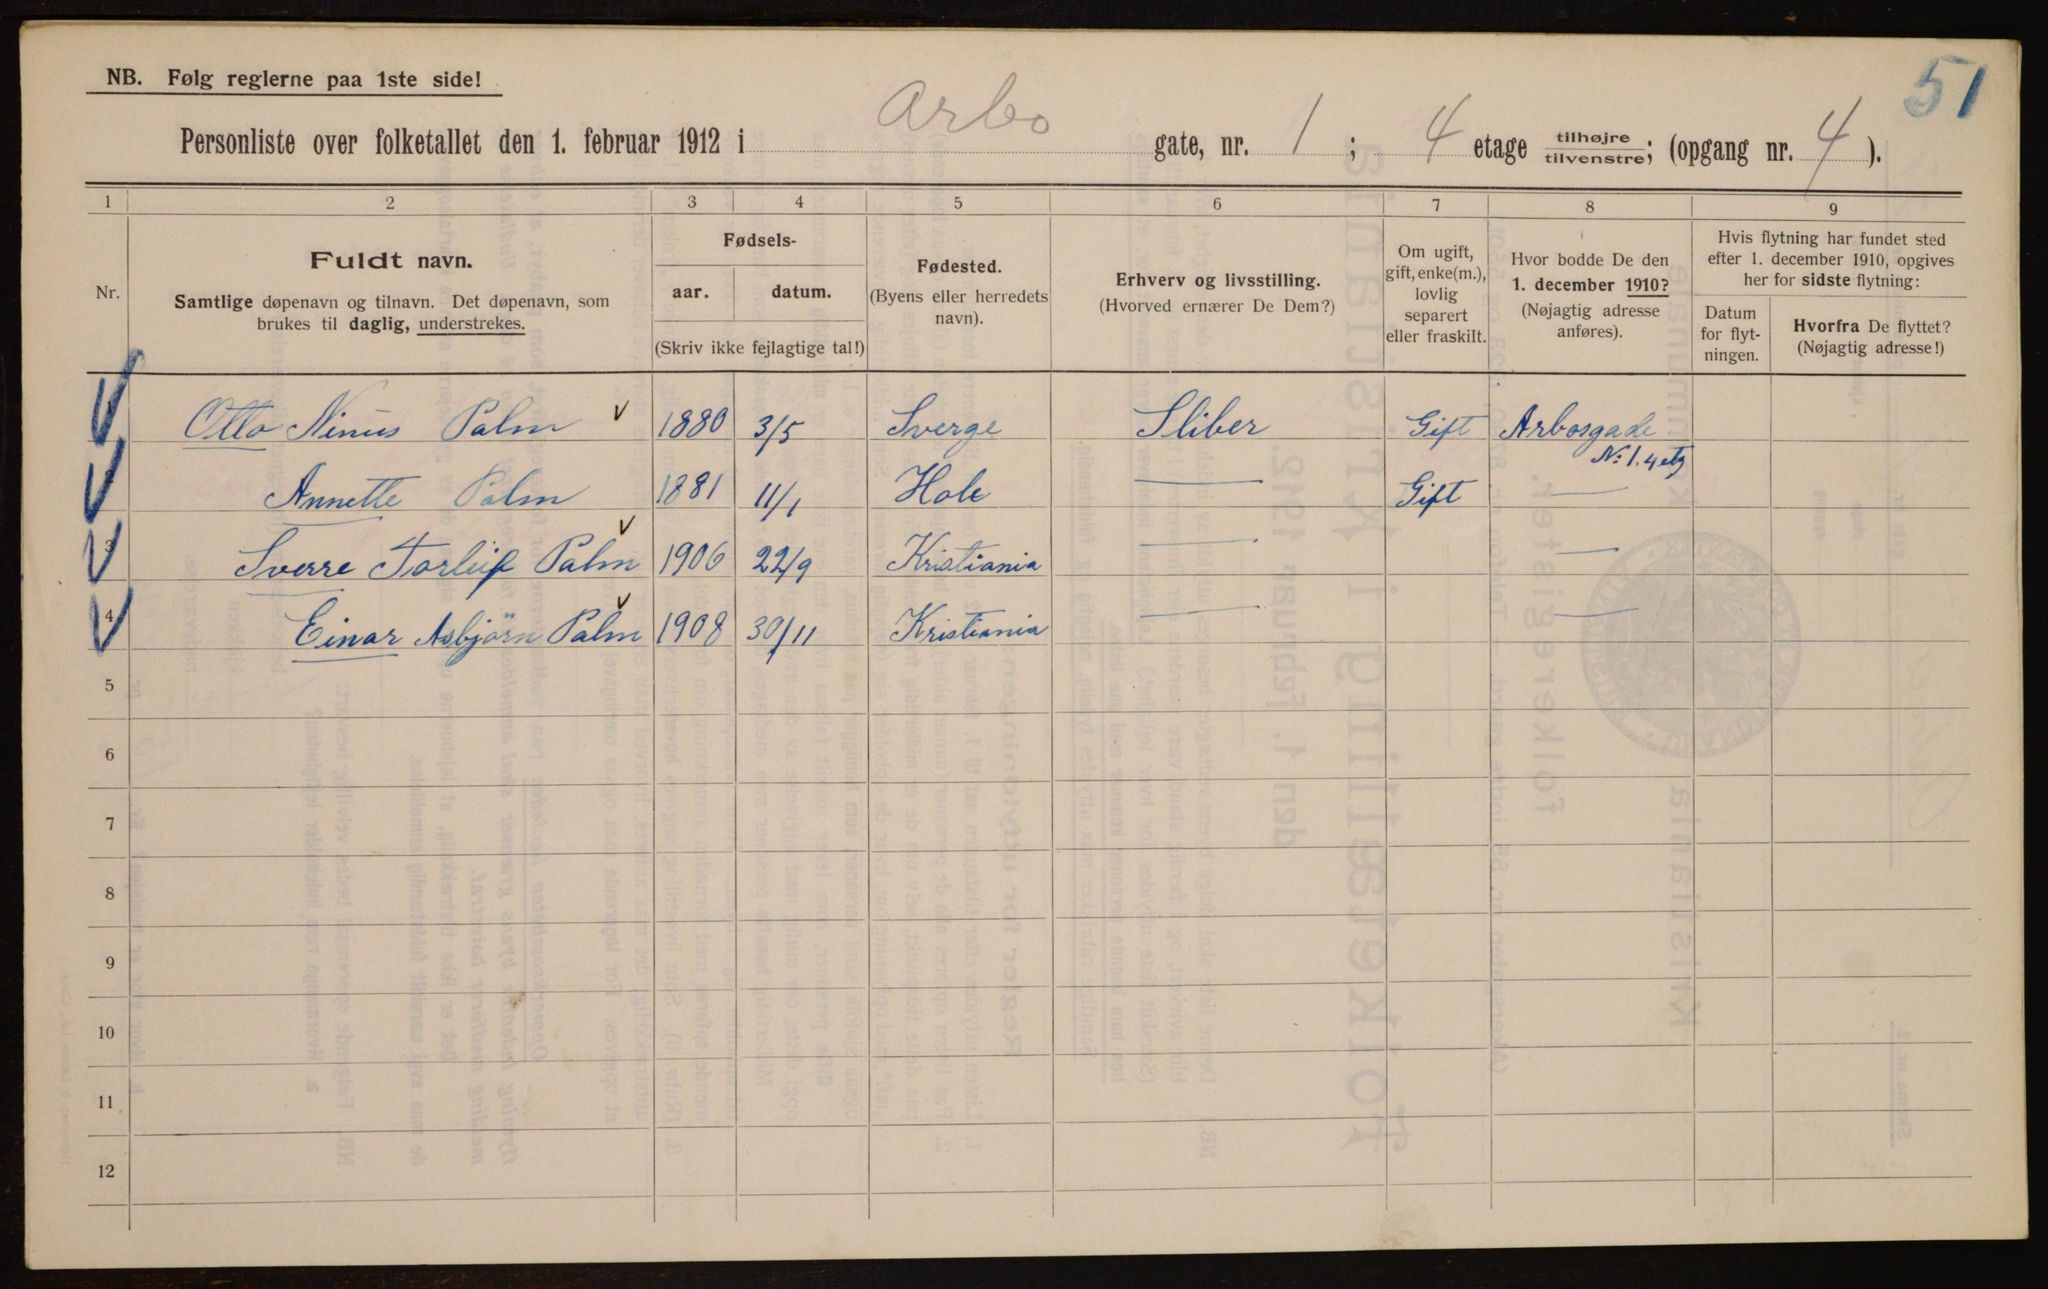 51
NB. Følg reglerne paa 1ste side!
Personliste over folketallet den 1. februar 1912 i Arbo gate, nr. 1; 4 etage tilhøjre/tilvenstre; (opgang nr. 4).
1 2 3 4 5 6 7 8 9
Nr.
Fuldt navn.
Samtlige døpenavn og tilnavn. Det døpenavn, som
brukes til daglig, understrekes.
Fødsels-
aar. datum.
(Skriv ikke fejlagtige tal!)
Fødested.
(Byens eller herredets
navn).
Erhverv og livsstilling.
(Hvorved ernærer De Dem?)
Om ugift,
gift, enke(m.),
lovlig
separert
eller fraskilt.
Hvor bodde De den
1. december 1910?
(Nøjagtig adresse
anføres).
Hvis flytning har fundet sted
efter 1. december 1910, opgives
her for sidste flytning:
Datum
for flyt-
ningen.
Hvorfra De flyttet?
(Nøjagtig adresse!)
Otto Ninus Palm 1880 3/5 Sverge Sliber Gift Arbosgade
No 1. 4 etg
Annette Palm 1881 11/1 Hole — Gift —
3 Sverre Torleif Palm 1906 22/9 Kristiania — —
4 Einar Asbjörn Palm 1908 30/11 Kristiania — —
5
6
7
8
9
10
11
12